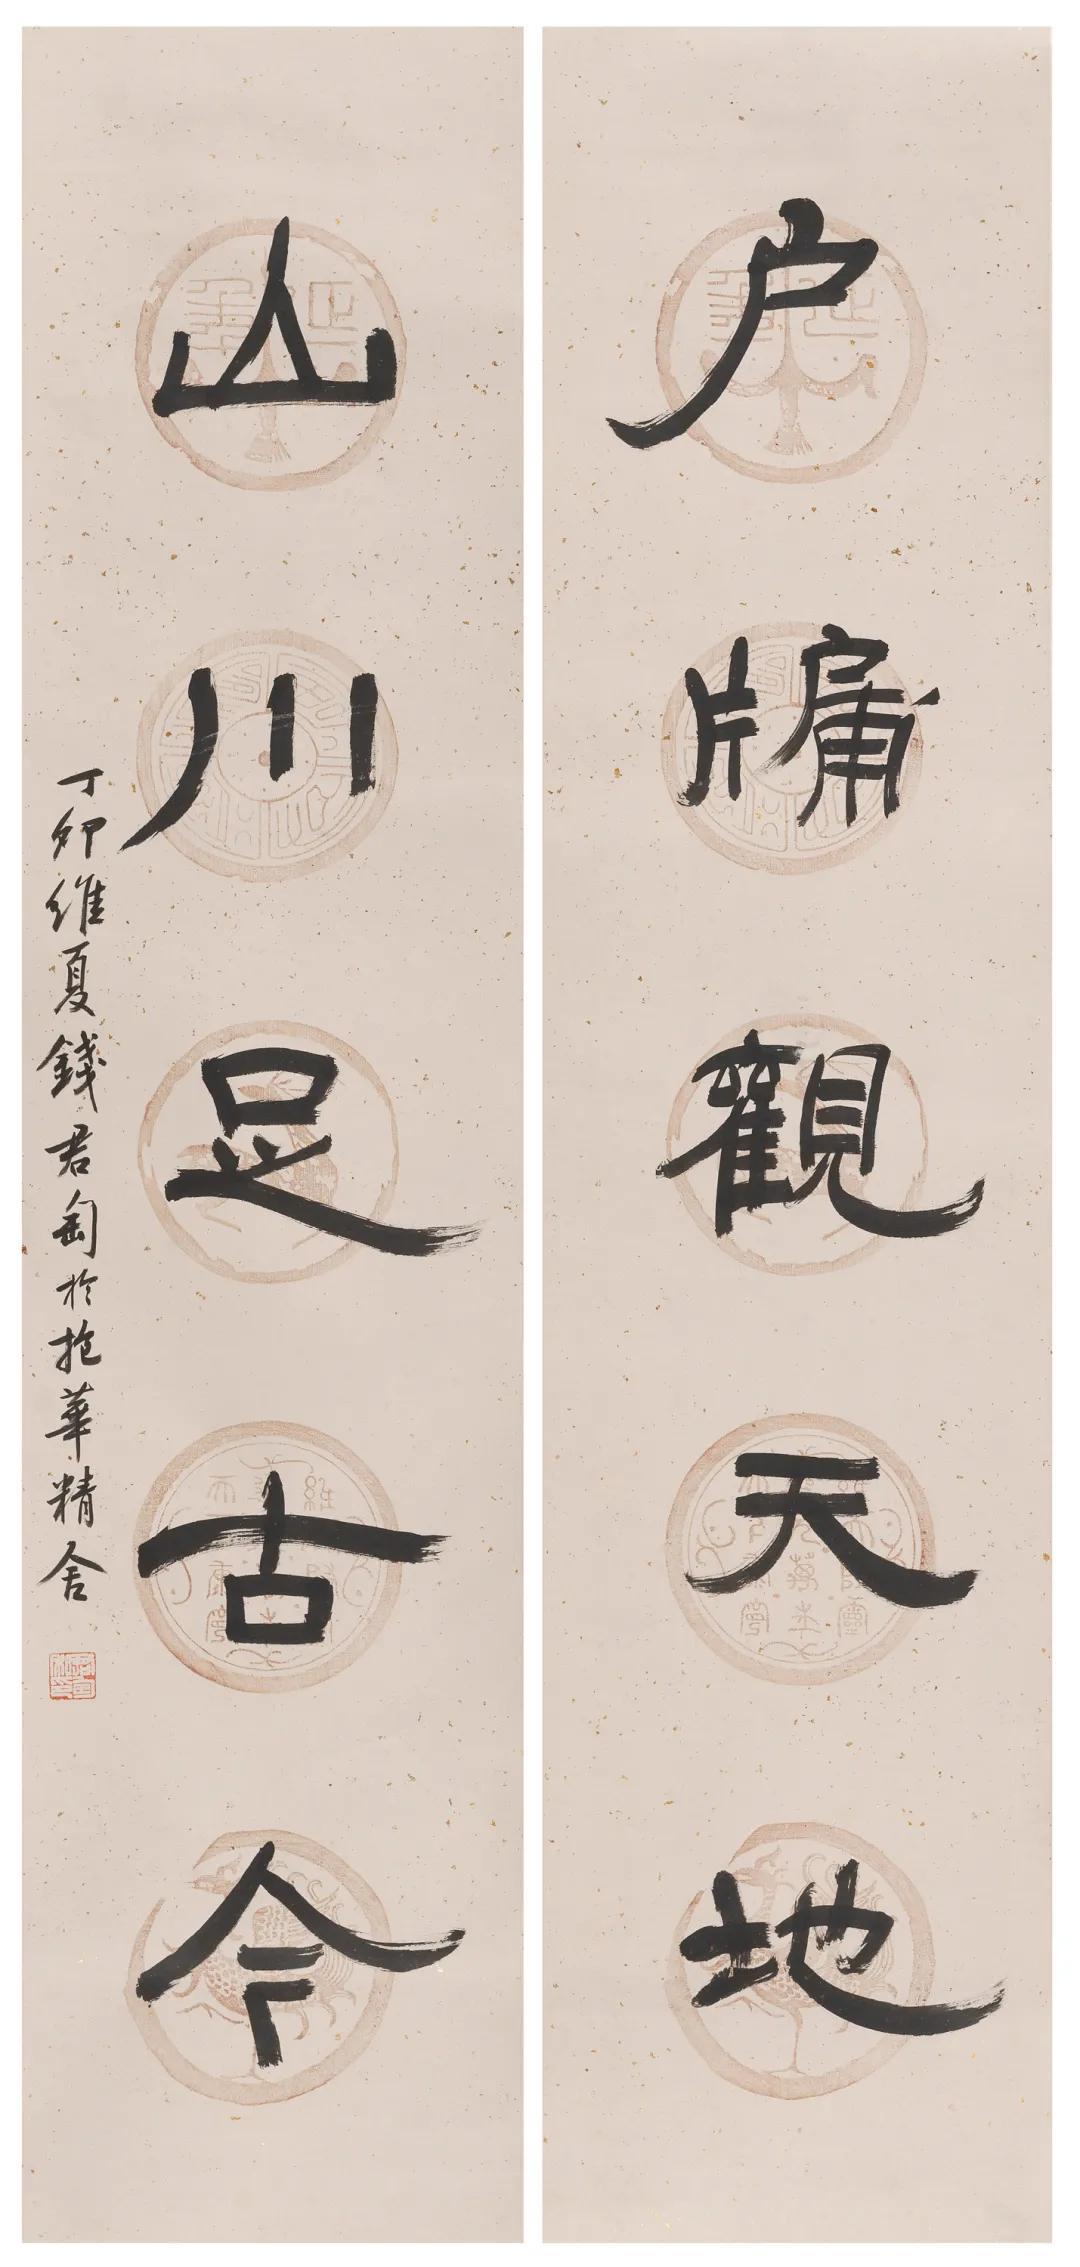 户牖觀天地
山川足古今
丁卯維夏錢君匋於抱華精舍